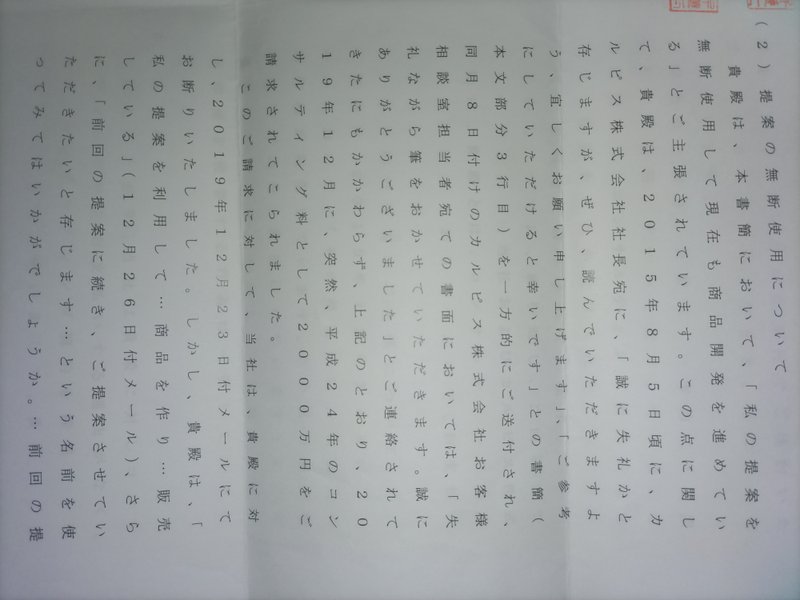 (2)提案の無断使用について
貴殿は、本書簡において、「私の提案を
無断使用して現在も商品開発を進めてい
る」とご主張されています。この点に関し
て、貴殿は、2015年8月5日頃に、カ
ルピス株式会社社長宛に、「誠に失礼かと
存じますが、ぜひ、読んでいただきますよ
う、宜しくお願い申し上げます」、「ご参考
にしていただけると幸いです」との書簡(
本文部分3行目)を一方的にご送付され、
同月8日付けのカルピス株式会社お客様
相談室担当者宛ての書面においては、「失
礼ながら筆をおかせていただきます。誠に
ありがとうございました」とご連絡されて
きたにもかかわらず、上記のとおり、20
19年12月に、突然、平成24年のコン
サルティング料として2000万円をご
請求されてこられました。
このご請求に対して、当社は、貴殿に対
し、2019年12月23日付メールにて
お断りいたしました。しかし、貴殿は、「
私の提案を利用して…商品を作り…販売
している」(12月26日付メール)、さら
に、「前回の提案に続き、ご提案させてい
ただきたいと存じます…という名前を使
ってみてはいかがでしょうか。…前回の提